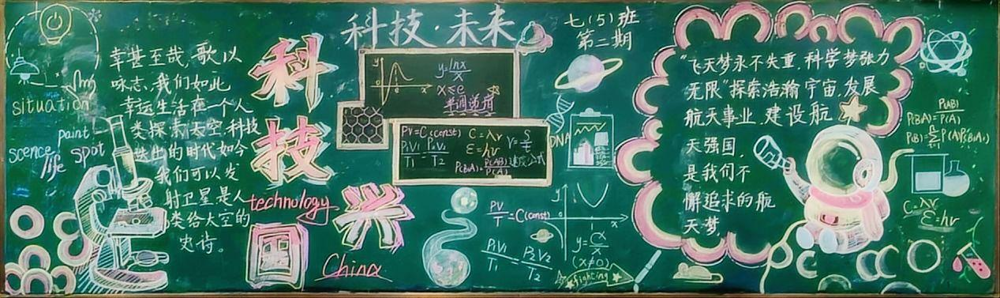 科技·未来
七(5)班
第二期
situation
paint
scence
life
spot
幸甚至哉,歌以
咏志,我们如此
幸运生活在一个人
类探索太空,科技
迭出的时代如今
我们可以发
射卫星是人
类给太空的
史诗。
科
技
兴
国
technology
China
y=lnx/x
x≤e
单调递增
PV=C(const)
P₁V₁/T₁=P₂V₂/T₂
C=λν
ε=hν
DNA
PV/T=C(const)
P₁V₁/T₁=P₂V₂/T₂
(x≠0)
fighting
"飞天梦永不失重,科学梦张力
无限"探索浩瀚宇宙,发展
航天事业,建设航
天强国,
是我们不
懈追求的航
天梦
P(AB)
C=λν
ε=hν